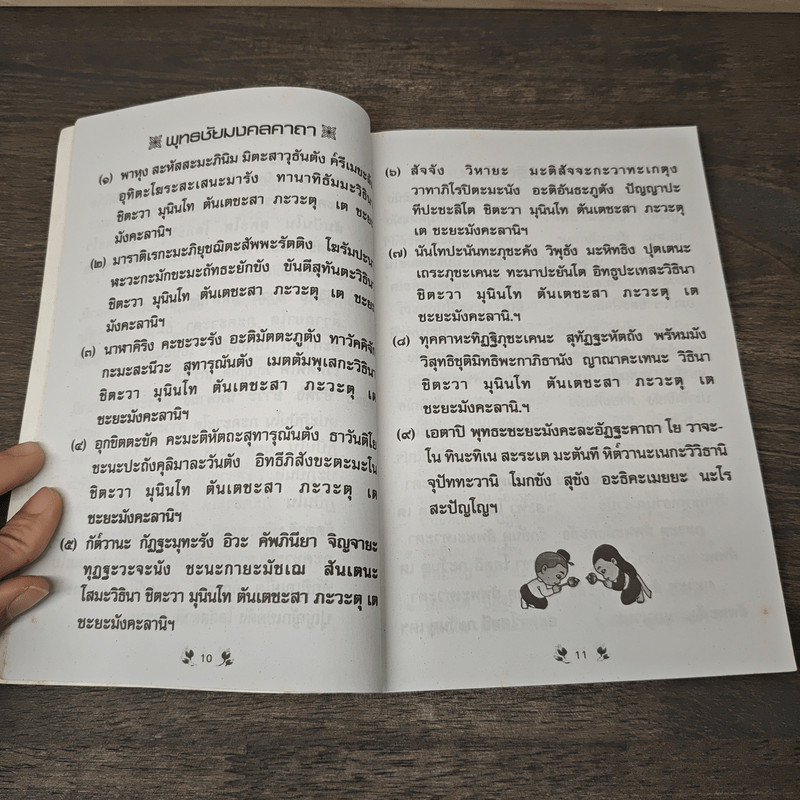 พุทธชัยมงคลคาถา
(๑) พาหุง สะหัสสะมะภินิม มิตะสาวุธันตัง ค๎รีเมขะลัง
อุทิตะโฆระสะเสนะมารัง ทานาทิธัมมะวิธินา
ชิตะวา มุนินโท ตันเตชะสา ภะวะตุ เต ชะยะ
มังคะลานิฯ
(๒) มาราติเรกะมะภิยุชฌิตะสัพพะรัตติง โฆรัมปะนา
ฬะวะกะมักขะมะถัทธะยักขัง ขันตีสุทันตะวิธินา
ชิตะวา มุนินโท ตันเตชะสา ภะวะตุ เต ชะยะ
มังคะลานิฯ
(๓) นาฬาคิริง คะชะวะรัง อะติมัตตะภูตัง ทาวัคคิจัก
กะมะสะนีวะ สุทารุณันตัง เมตตัมพุเสกะวิธินา
ชิตะวา มุนินโท ตันเตชะสา ภะวะตุ เต
ชะยะมังคะลานิฯ
(๔) อุกขิตตะขัค คะมะติหัตถะสุทารุณันตัง ธาวันติโย
ชะนะปะถังคุลิมาละวันตัง อิทธีภิสังขะตะมะโน
ชิตะวา มุนินโท ตันเตชะสา ภะวะตุ เต
ชะยะมังคะลานิฯ
(๕) กัต๎วานะ กัฏฐะมุทะรัง อิวะ คัพภินียา จิญจายะ
ทุฏฐะวะจะนัง ชะนะกายะมัชเฌ สันเตนะ
โสมะวิธินา ชิตะวา มุนินโท ตันเตชะสา ภะวะตุ เต
ชะยะมังคะลานิฯ
10
(๖) สัจจัง วิหายะ มะติสัจจะกะวาทะเกตุง
วาทาภิโรปิตะมะนัง อะติอันธะภูตัง ปัญญาปะ
ทีปะชะลิโต ชิตะวา มุนินโท ตันเตชะสา ภะวะตุ
เต ชะยะมังคะลานิฯ
(๗) นันโทปะนันทะภุชะคัง วิพุธัง มะหิทธิง ปุตเตนะ
เถระภุชะเคนะ ทะมาปะยันโต อิทธูปะเทสะวิธินา
ชิตะวา มุนินโท ตันเตชะสา ภะวะตุ เต
ชะยะมังคะลานิ.ฯ
(๘) ทุคคาหะทิฏฐิภุชะเคนะ สุทัฏฐะหัตถัง พรัหมมัง
วิสุทธิชุติมิทธิพะกาภิธานัง ญาณาคะเทนะ วิธินา
ชิตะวา มุนินโท ตันเตชะสา ภะวะตุ เต
ชะยะมังคะลานิ.ฯ
(๙) เอตาปิ พุทธะชะยะมังคะละอัฏฐะคาถา โย วาจะ-
โน ทินะทิเน สะระเต มะตันที หิต๎วานะเนกะวิวิธานิ
จุปัททะวานิ โมกขัง สุขัง อะธิคะเมยยะ นะโร
สะปัญโญฯ
11